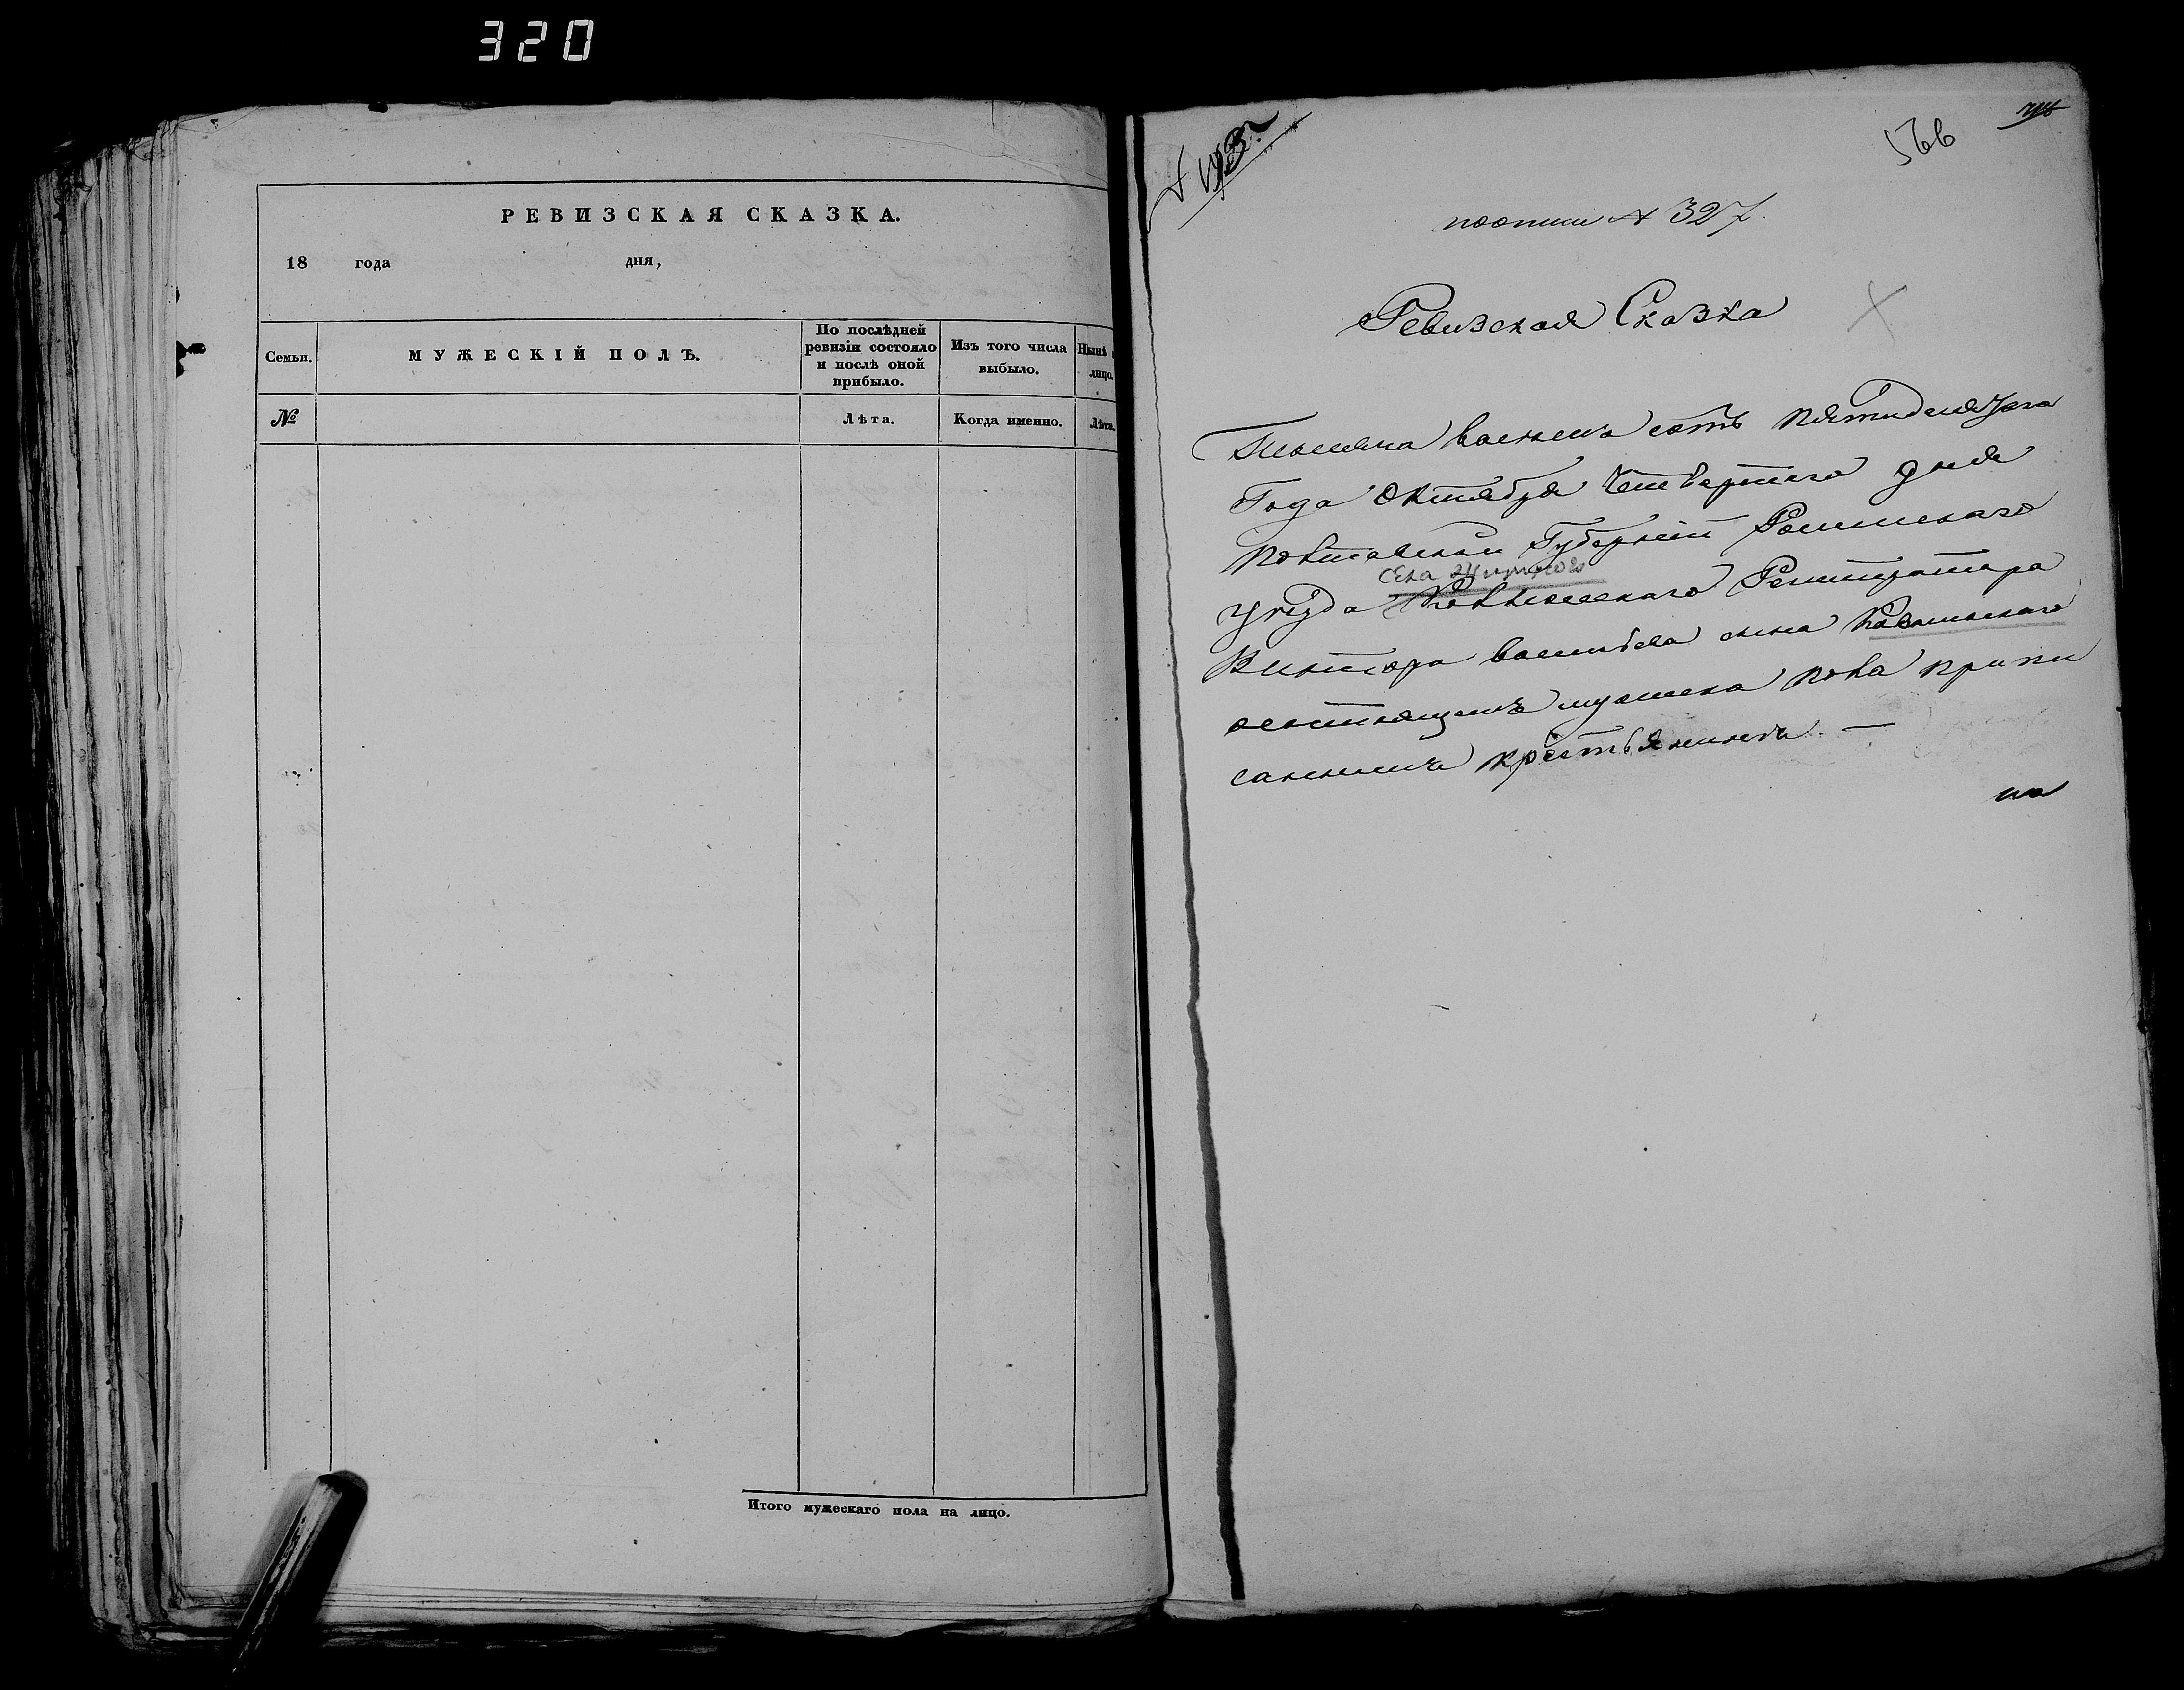 320
РЕВИЗСКАЯ СКАЗКА.
18 года дня,
Семьи. МУЖЕСКІЙ ПОЛЪ. По послѣдней ревизіи состояло и послѣ оной прибыло. Изъ того числа выбыло. Нынѣ лицо.
№ Лѣта. Когда именно. Лѣта.
Итого мужескаго пола на лицо.
566
№ 327.
Ревизская Сказка
Тысяча восемь сотъ пятидесятаго
Года Октября Четвертого дня
Полтавской Губерніи Роменскаго
села
уѣзда Коллежскаго Регистратора
Виктора Васильева сына
мужеска пола припи
саннымъ крестьянинѣ —